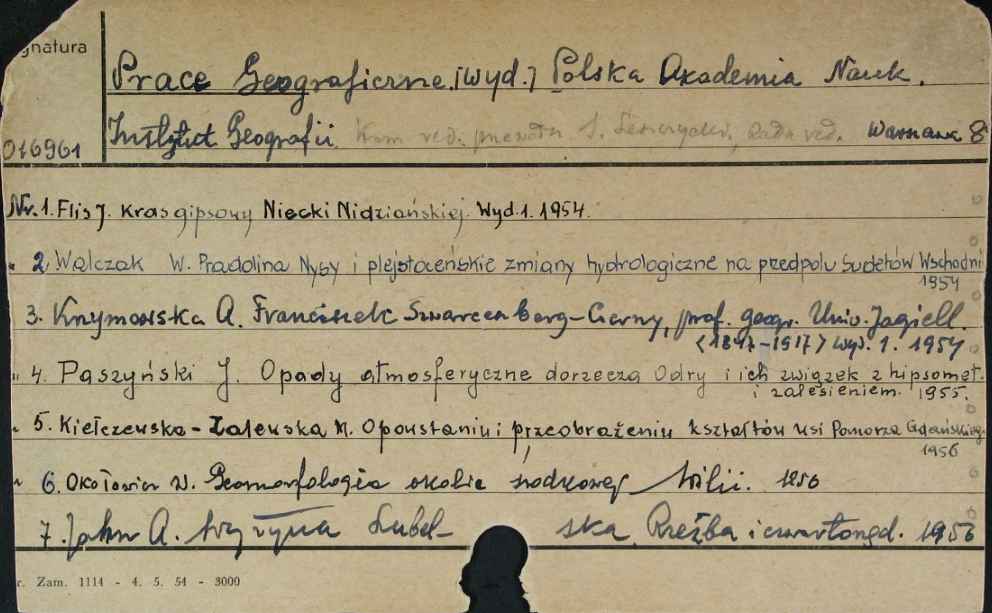 gnatura
Prace Geograficzne. [Wyd.] Polska Akademia Nauk.
Instytut Geografii. Kom red. przewodn. S. Leszczycki, Rada red. Warszawa 8°
016961
Nr. 1. Flis J. Kras gipsowy Niecki Nidziańskiej. Wyd. 1. 1954.
" 2. Walczak W. Pradolina Nysy i plejstoceńskie zmiany hydrologiczne na przedpolu Sudetów Wschodni
1954
3. Krzymowska A. Franciszek Szwarcenberg-Czerny, prof. geogr. Univ. Jagiell.
(1847-1917) Wyd. 1. 1954
" 4. Paszyński J. Opady atmosferyczne dorzecza Odry i ich związek z hipsomet.
i zalesieniem. 1955.
" 5. Kiełczewska-Zaleska M. O powstaniu i przeobrażeniu kształtów wsi Pomorza Gdańskieg.
1956
" 6. Okołowicz W. Geomorfologia okolic środkowej Wilii. 1956
7. Jahn A. Wyżyna Lubelska. Rzeźba i czwartorzęd. 1956
r. Zam. 1114 - 4. 5. 54 - 3000